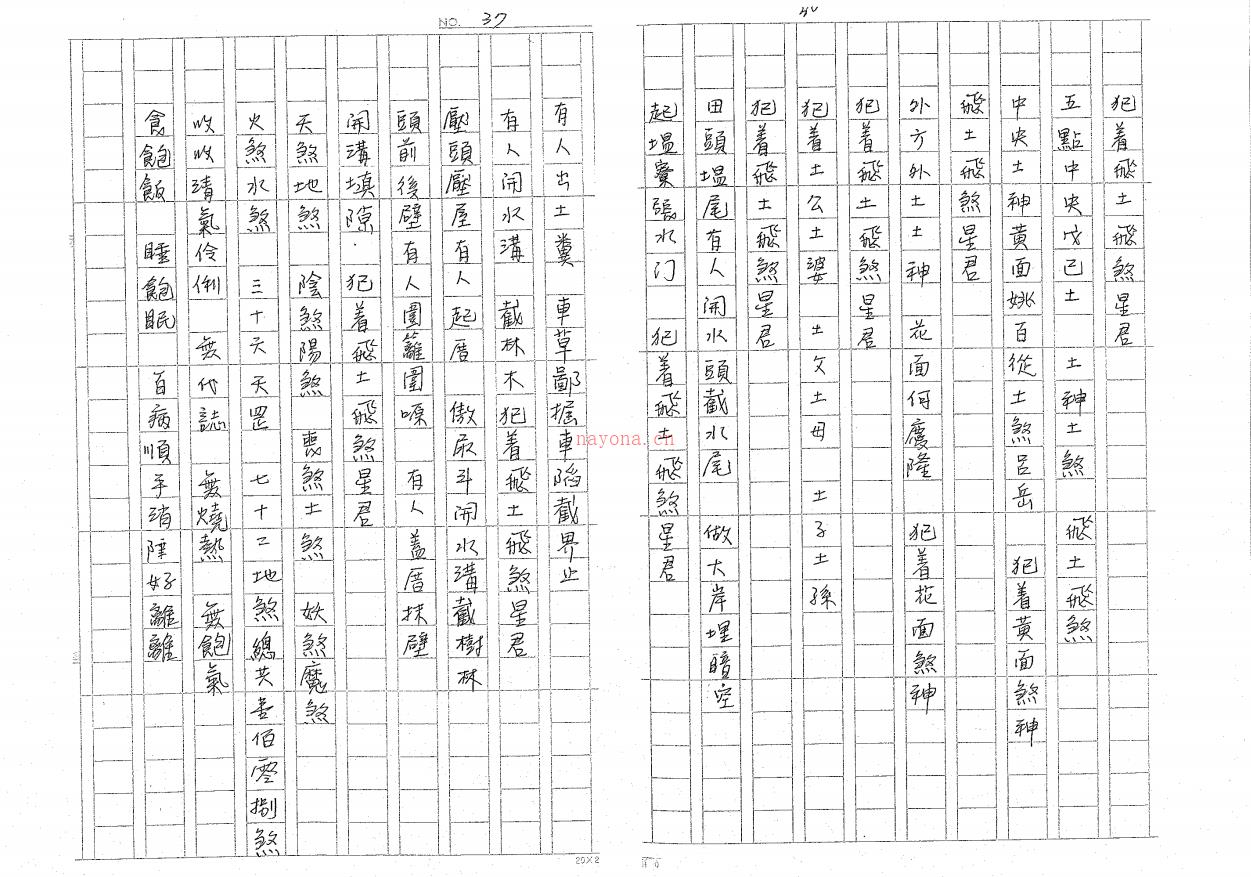 40
犯着飛土飛煞星君
五點中央戊己土 土神土煞 飛土飛煞
中央土神黃面姚百從土煞呂岳 犯着黃面煞神
飛土飛煞星君
外方外土土神 花面何慶隆 犯着花面煞神
犯着飛土飛煞星君
犯着土公土婆 土父土母 土子土孫
犯着飛土飛煞星君
田頭塭尾有人開水頭截水尾 做大岸埋暗空
起塭寮張水门 犯着飛土飛煞星君
NO. 37
有人出土糞 車草鄙掘車陷截界止
有人開水溝 截林木犯着飛土飛煞星君
壓頭壓屋有人起厝 傲尿斗開水溝截樹林
頭前後壁有人圍籬圍 有人蓋厝抹壁
開溝填隙.犯着飛土飛煞星君
天煞地煞 陰煞陽煞 喪煞土煞 妖煞魔煞
火煞水煞 三十六天罡 七十二地煞總共壹佰零捌煞
收收清氣伶俐 無代誌 無燒熱 無飽氣
食飽飯 睡飽眠 百病順手消 陸好離離
20×2
nayona.cn